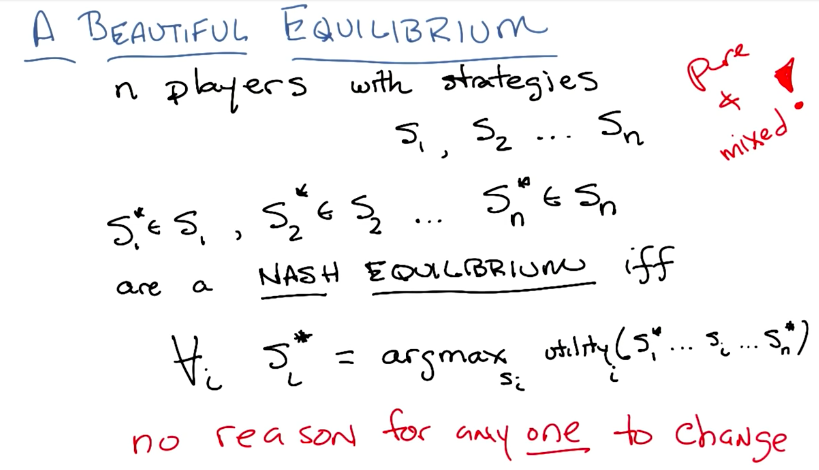 A BEAUTIFUL EQUILIBRIUM
n players with strategies
S₁, S₂ ... Sₙ
pure
&
mixed!
S₁* ∈ S₁, S₂* ∈ S₂ ... Sₙ* ∈ Sₙ
are a NASH EQUILBRIUM iff
∀ᵢ Sᵢ* = argmax_{sᵢ} utilityᵢ(S₁* ... sᵢ ... Sₙ*)
no reason for any one to change